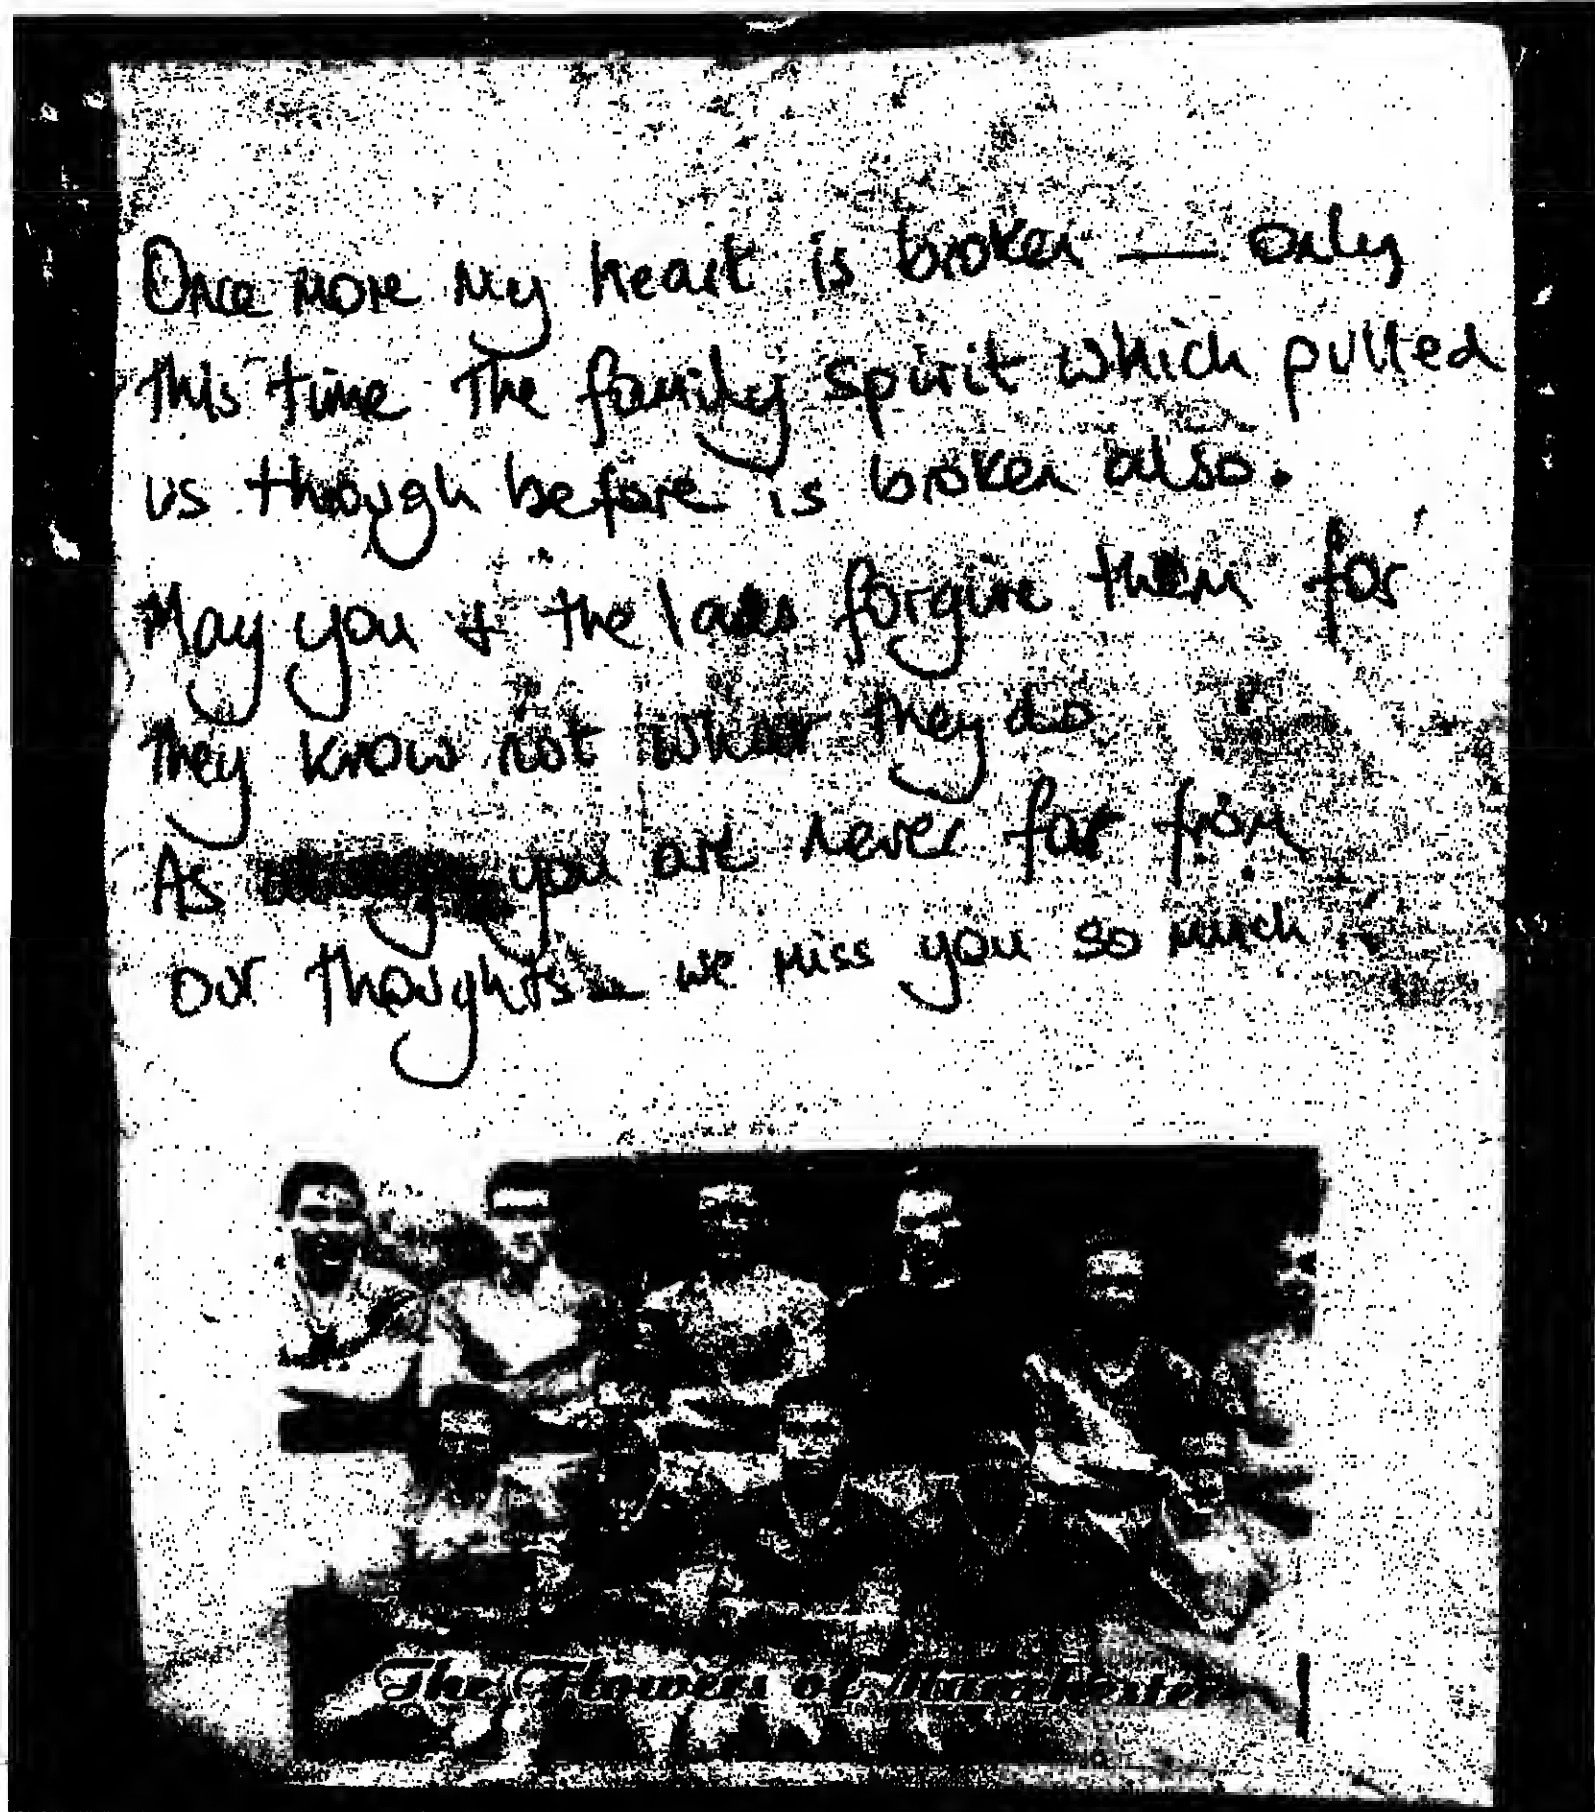 Once more my heart is broken — only
This time The family spirit which pulled
us though before is broken also.
May you & the lads forgive them for
They know not what they do
As you are never far from
our thoughts — we miss you so much
The Flowers of Manchester